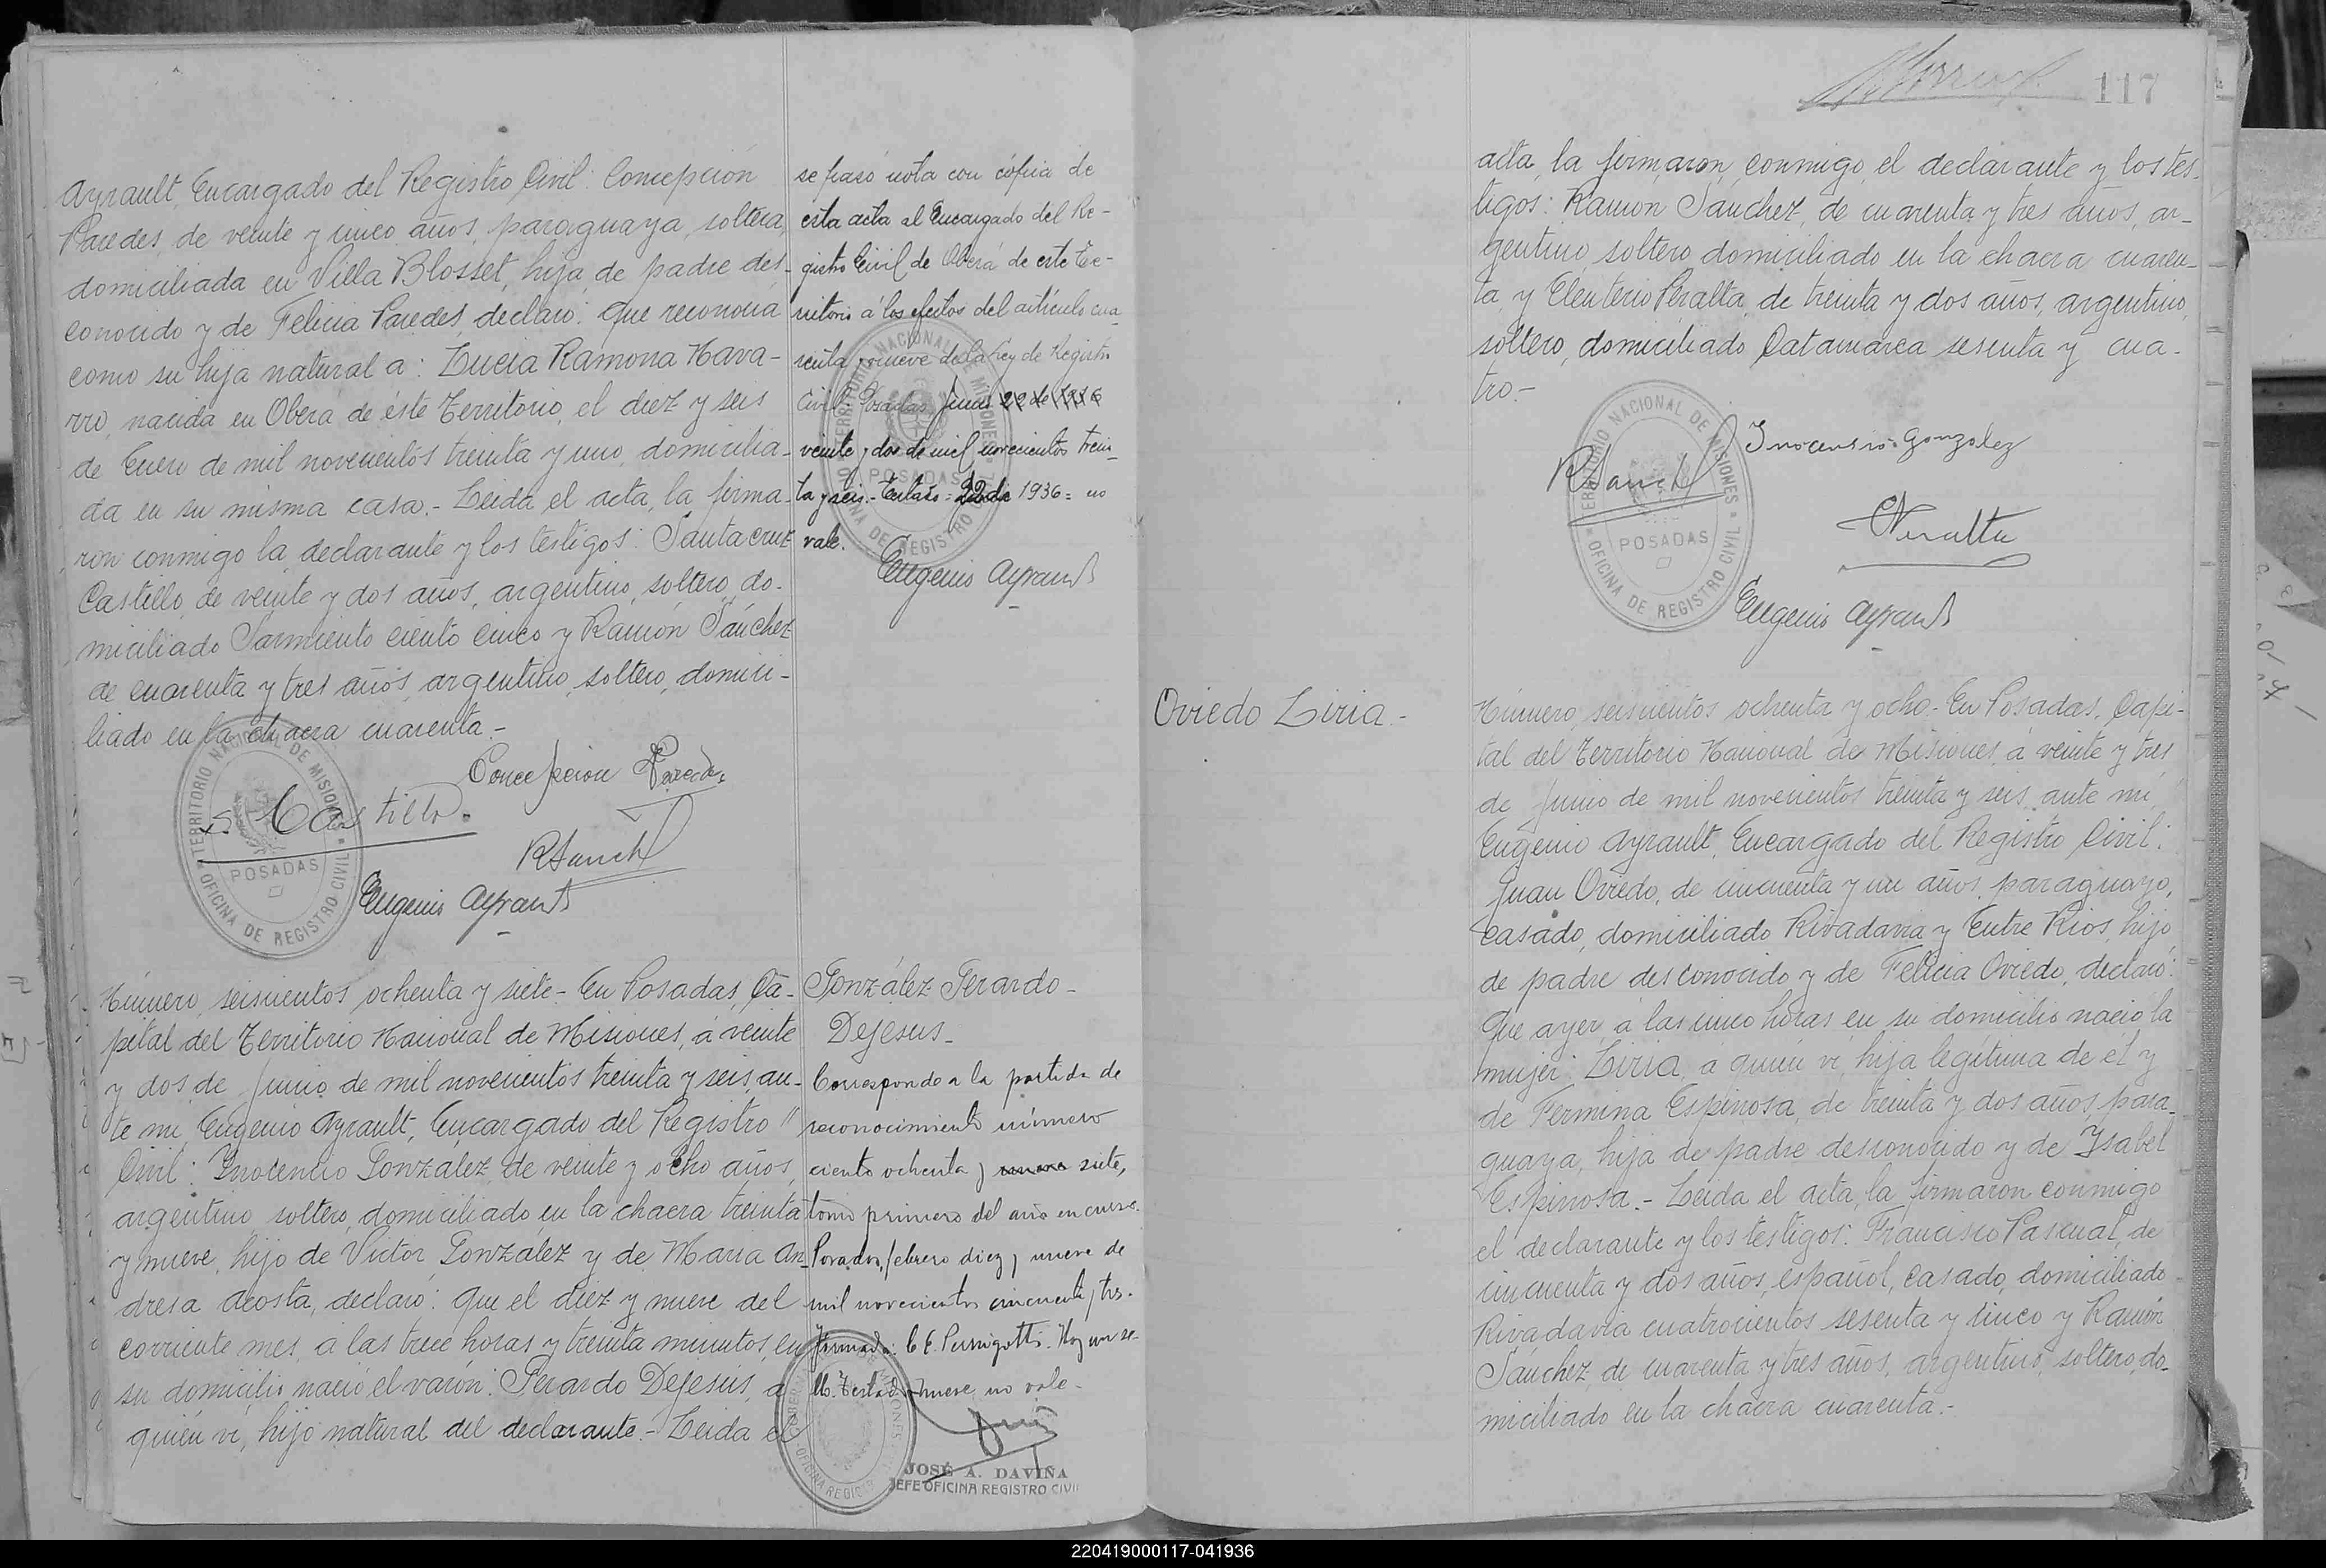 Ayrault, Encargado del Registro Civil: Concepción
Paredes, de veinte y cinco años, paraguaya, soltera,
domiciliada en Villa Blosset, hija de padre des-
conocido y de Felicia Paredes, declaró: que reconocía
como su hija natural a: Lucia Ramona Nava-
rro, nacida en Oberá de éste Territorio, el diez y seis
de Enero de mil novecientos treinta y uno, domicilia-
da en su misma casa.- Leida el acta, la firma-
ron conmigo la declarante y los testigos: Santacruz
Castillo, de veinte y dos años, argentino, soltero, do-
miciliado Sarmiento ciento cinco y Ramón Sánchez
de cuarenta y tres años, argentino, soltero, domici-
liado en la chacra cuarenta-
Concepcion Paredes
S Castillo.
RSanch
Eugenio Ayrault
TERRITORIO NACIONAL DE MISIONES
POSADAS
OFICINA DE REGISTRO CIVIL
se pasó nota con cópia de
esta acta al Encargado del Re-
gistro Civil de Oberá de este Te-
rritorio á los efectos del artículo cua
renta y nueve de la Ley de Registro
Civil. Posadas, Junio 22 de 1936
veinte y dos de mil novecientos trein-
ta y seis.- Entado = 22 de 1936 = no
vale.
Eugenio Ayrault
TERRITORIO NACIONAL DE MISIONES
POSADAS
OFICINA DE REGISTRO CIVIL
Número seiscientos ochenta y siete- En Posadas, Ca-
pital del Territorio Nacional de Misiones, á veinte
y dos de Junio de mil novecientos treinta y seis, an-
te mi, Eugenio Ayrault, Encargado del Registro "
Civil: Inocencio González, de veinte y ocho años,
argentino, soltero, domiciliado en la chacra treinta
y nueve, hijo de Victor González y de Maria An-
dresa Acosta, declaró: que el diez y nueve del
corriente mes, á las trece horas y treinta minutos, en
su domicilio nació el varón: Gerardo Dejesús, a
quién ví, hijo natural del declarante.- Leida el
González Gerardo-
Dejesus-
Corresponde a la partida de
reconocimiento número
ciento ochenta y nueve siete,
tomo primero del año en curso.
Posadas, febrero diez y nueve de
mil novecientos cincuenta y tres.
Firmado: C E. Pernigotti. Hay un se-
llo. Testado-nueve, no vale-
JOSÉ A. DAVIÑA
JEFE OFICINA REGISTRO CIVIL
117
acta, la firmaron, conmigo, el declarante y los tes-
tigos: Ramón Sánchez, de cuarenta y tres años, ar-
gentino, soltero domiciliado en la chacra cuaren-
ta, y Eleuterio Peralta, de treinta y dos años, argentino,
soltero, domiciliado Catamarca sesenta y cua-
tro.-
Inocensio Gonzalez
RSanch
EPeralta
Eugenio Ayrault
TERRITORIO NACIONAL DE MISIONES
POSADAS
OFICINA DE REGISTRO CIVIL
Oviedo Liria-
Número seiscientos ochenta y ocho- En Posadas, Capi-
tal del Territorio Nacional de Misiones, á veinte y tres
de Junio de mil novecientos treinta y seis, ante mi,
Eugenio Ayrault, Encargado del Registro Civil:
Juan Oviedo, de cincuenta y un años, paraguayo,
casado, domiciliado Rivadavia y Entre Rios, hijo
de padre desconocido y de Felicia Oviedo, declaró:
que ayer, á las cinco horas, en su domicilio nació la
mujer: Liria, a quién ví, hija legítima de él y
de Fermina Espinosa, de treinta y dos años, para-
guaya, hija de padre desconocido y de Ysabel
Espinosa.- Leida el acta, la firmaron conmigo
el declarante y los testigos: Francisco Pascual, de
cincuenta y dos años, español, casado, domiciliado
Rivadavia cuatrocientos sesenta y cinco y Ramón
Sánchez, de cuarenta y tres años, argentino, soltero, do-
miciliado en la chacra cuarenta.-
220419000117-041936